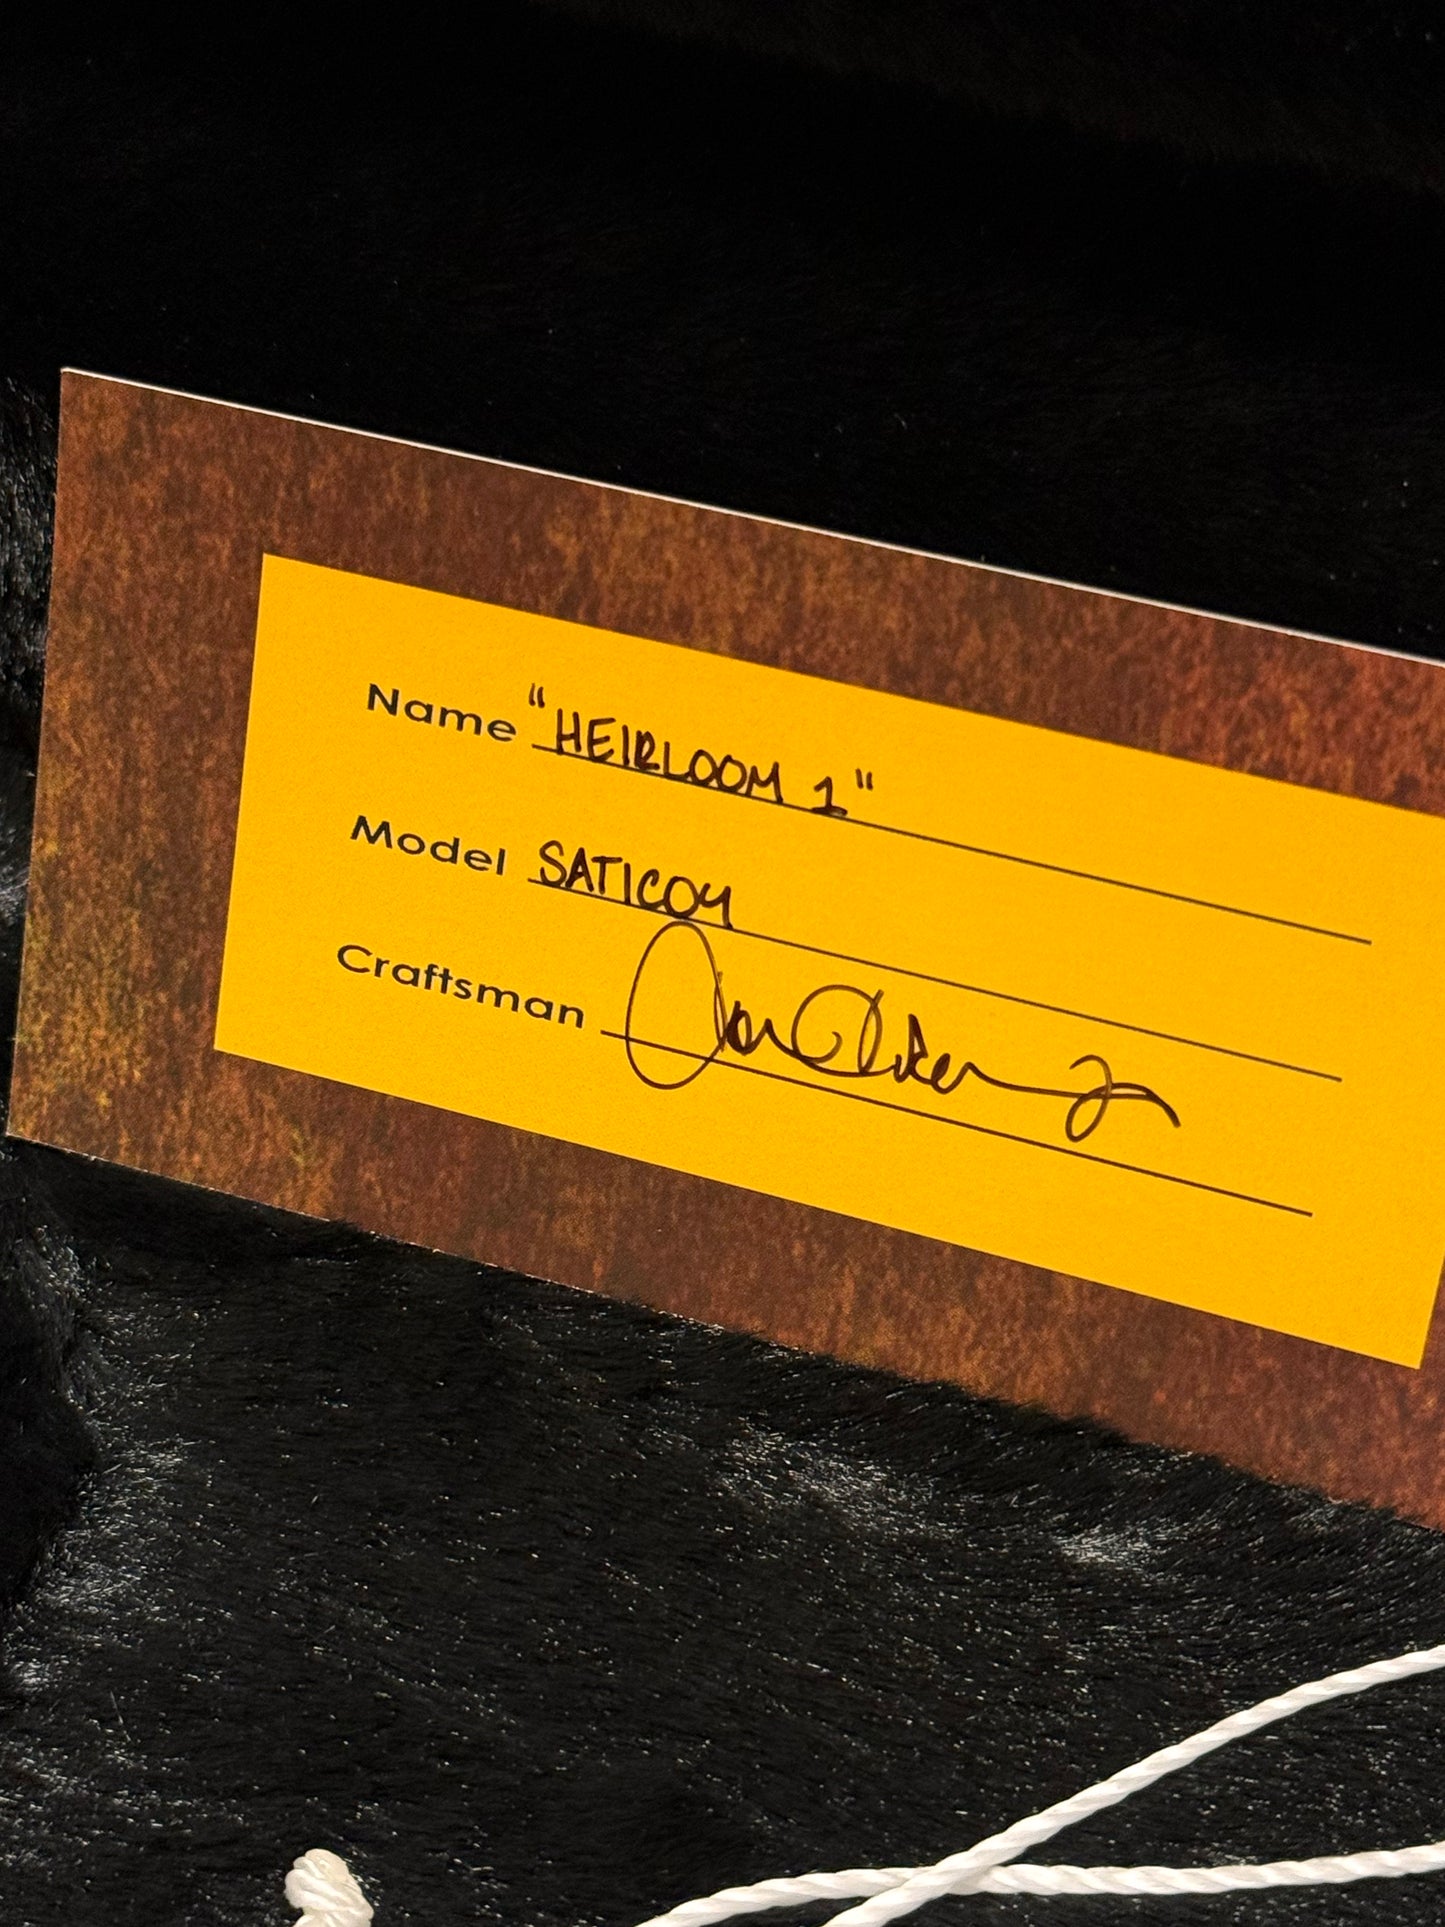 Name "HEIRLOOM 1"
Model SATICOY
Craftsman